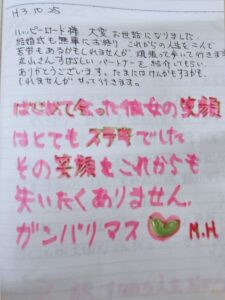 H3.10.25
ハッピーロード様 大変お世話になりました
結婚式も無事にお終り これからの人生を二人で
苦労もあるかもしれませんが 頑張って歩いて行きます
すばらしいパートナーを紹介してもらい
ありがとうございます。たまにはけんかもするかも
しれませんが やって行きます。
はじめて会った彼女の笑顔
はとてもステキでした
その笑顔をこれからも
失いたくありません。
ガンバリマス M.H.